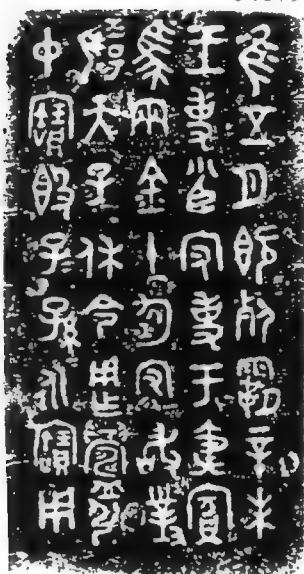 隹五月既死霸辛未
王事小臣守事于夷賓
馬兩金十鈞守敢對
揚天子休令用乍鑄引
中寶𣪘子子孫孫永寶用